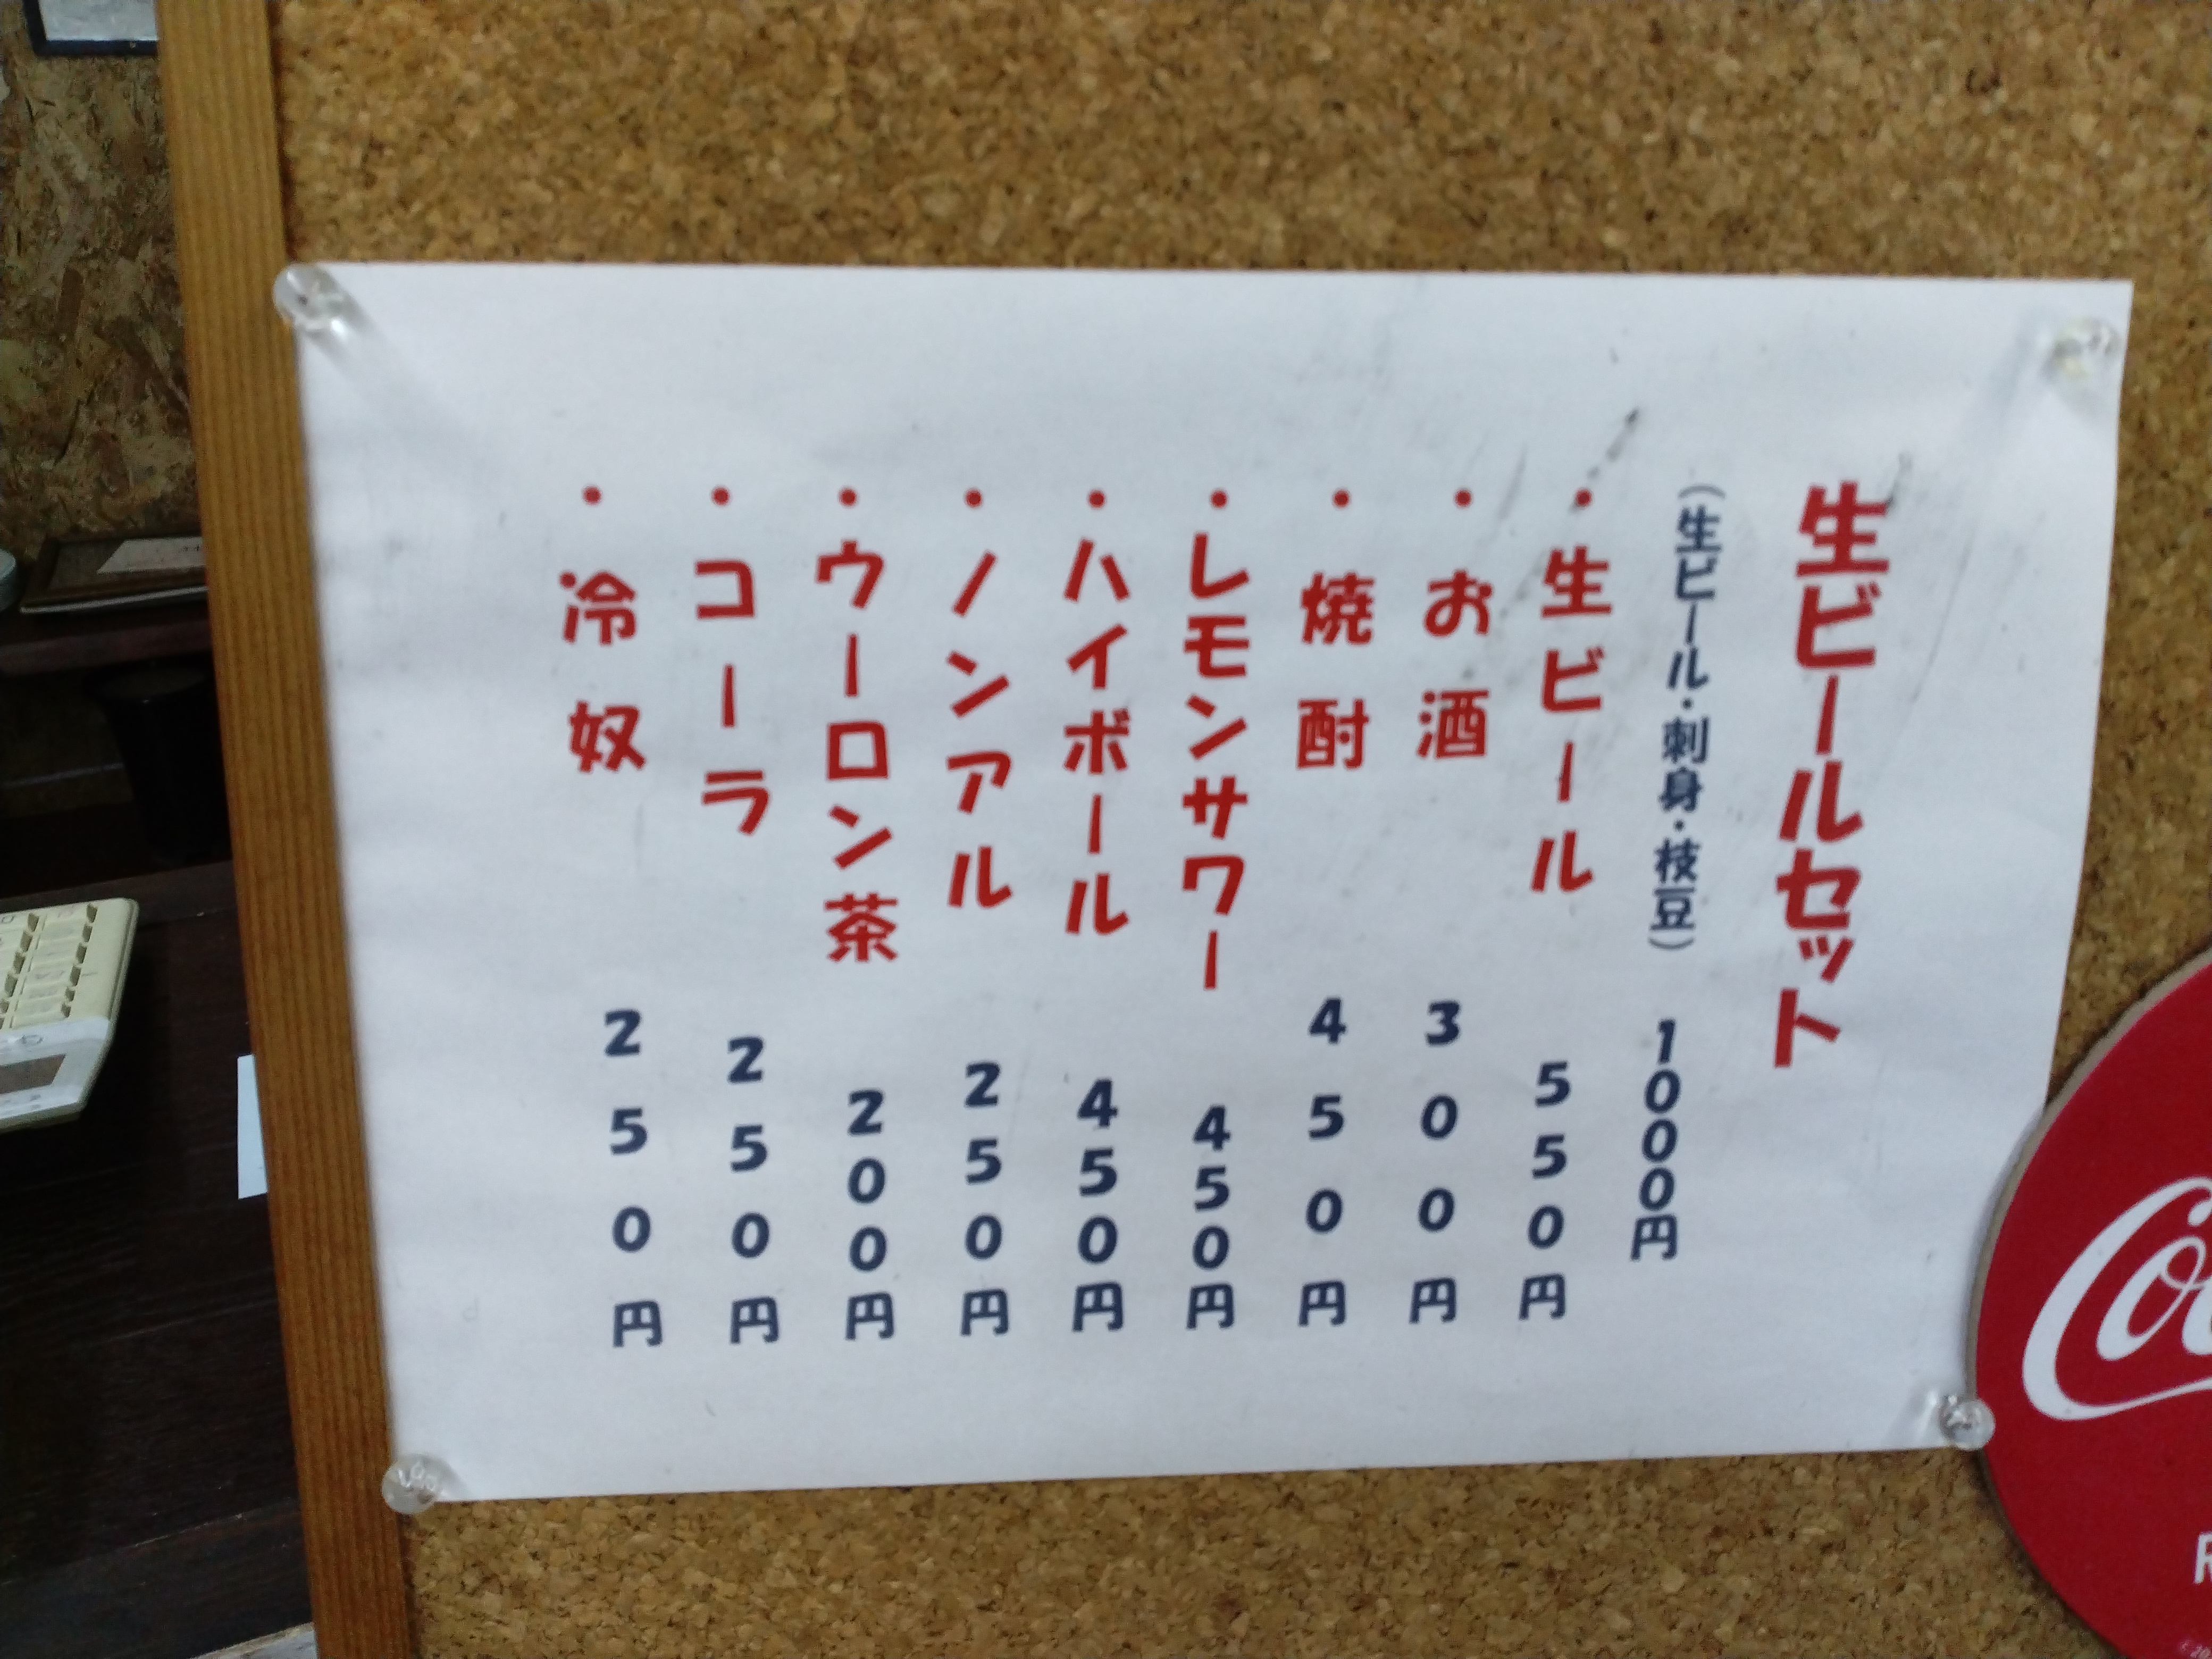 生ビールセット
(生ビール・刺身・枝豆) 1000円
・生ビール 550円
・お酒 300円
・焼酎 450円
・レモンサワー 450円
・ハイボール 450円
・ノンアル 250円
・ウーロン茶 200円
・コーラ 250円
・冷奴 250円